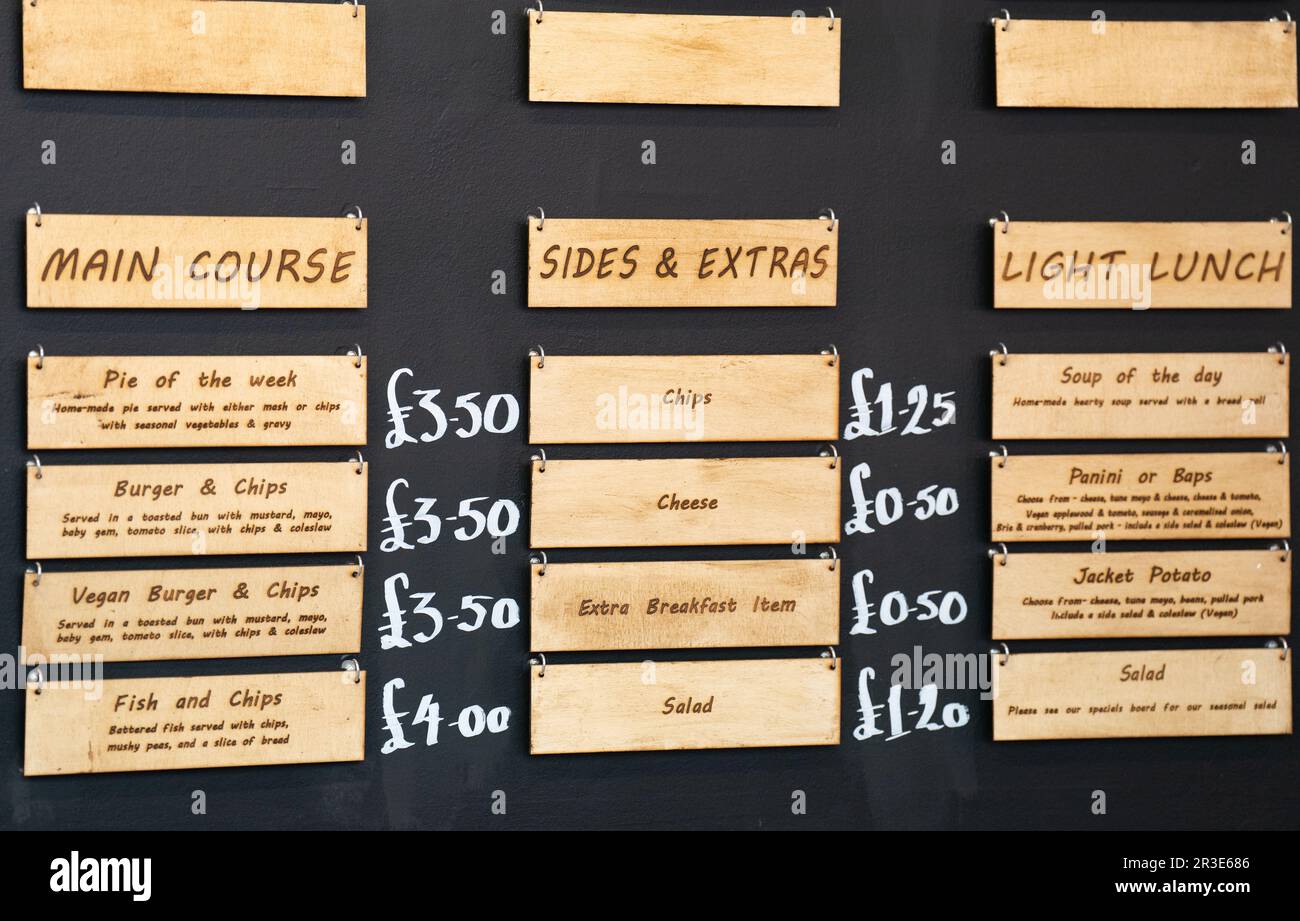 MAIN COURSE
Pie of the week
Home-made pie served with either mash or chips
with seasonal vegetables & gravy
£3-50
Burger & Chips
Served in a toasted bun with mustard, mayo,
baby gem, tomato slice, with chips & coleslaw
£3-50
Vegan Burger & Chips
Served in a toasted bun with mustard, mayo,
baby gem, tomato slice, with chips & coleslaw
£3-50
Fish and Chips
Battered fish served with chips,
mushy peas, and a slice of bread
£4-00
SIDES & EXTRAS
Chips
£1-25
Cheese
£0-50
Extra Breakfast Item
£0-50
Salad
£1-20
LIGHT LUNCH
Soup of the day
Home-made hearty soup served with a bread roll
Panini or Baps
Choose from - cheese, tuna mayo & cheese, cheese & tomato,
Vegan applewood & tomato, sausage & caramelised onion,
Brie & cranberry, pulled pork - include a side salad & coleslaw (Vegan)
Jacket Potato
Choose from- cheese, tuna mayo, beans, pulled pork
Include a side salad & coleslaw (Vegan)
Salad
Please see our specials board for our seasonal salad
alamy
alamy
Image ID: 2R3E686
www.alamy.com